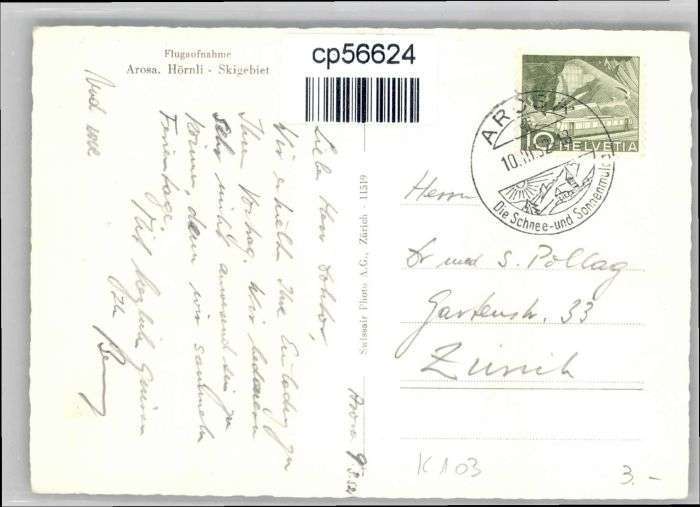 Flugaufnahme
Arosa, Hörnli - Skigebiet
cp56624
Arosa 9. 3. 52
Liebe Herr Doktor,
Wir erhielt Ihre Einladung zu
Ihrem Vortrag. Wir bedauern
sehr nicht anwesend sein zu
können, denn wir sammeln
Ferientage.
Mit herzlich Grüssen
Ihr
Und wie
Swissair Photo A.G., Zürich - 11519
AROSA
10.III.52
Die Schnee- und Sonnenmulde
10 HELVETIA
Herrn
Dr med S. Pollag
Gartenstr. 33
Zürich
K103
3.-